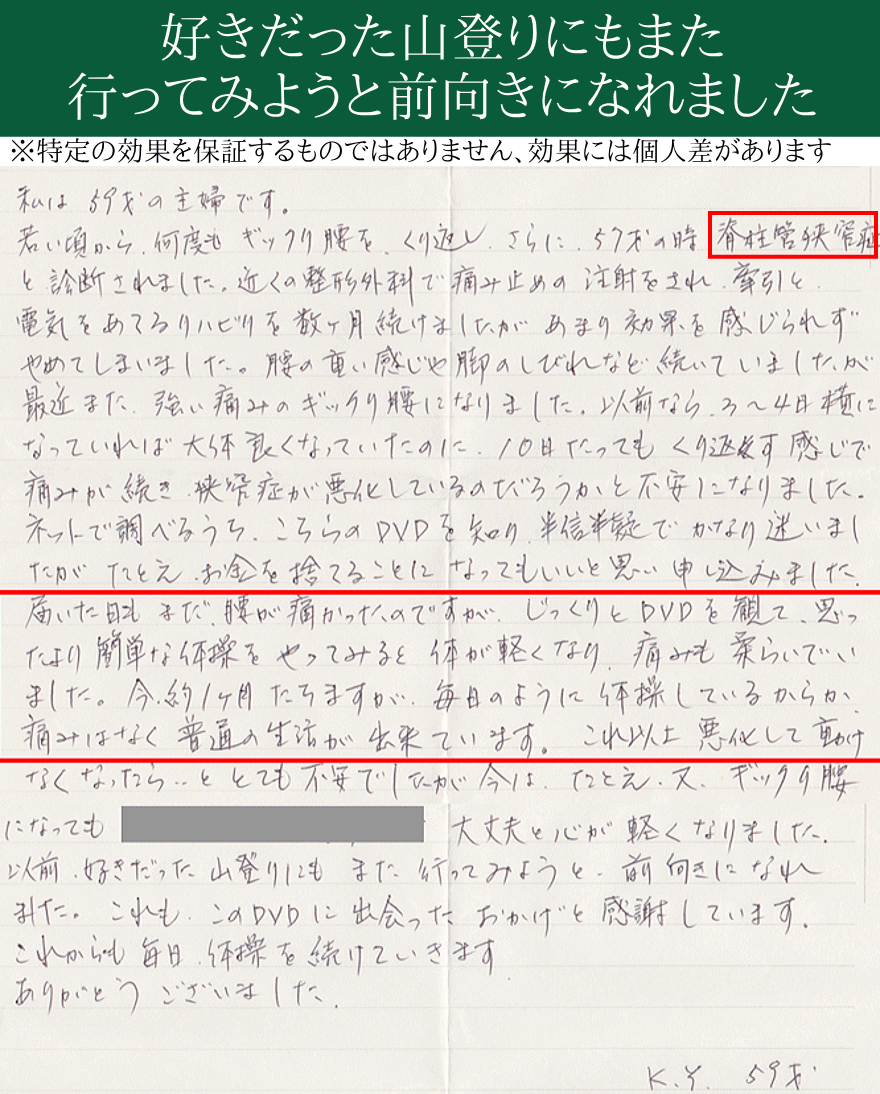 好きだった山登りにもまた
行ってみようと前向きになれました
※特定の効果を保証するものではありません、効果には個人差があります
私は59才の主婦です。
若い頃から、何度もギックリ腰を、くり返し、さらに、57才の時 脊柱管狭窄症
と診断されました。近くの整形外科で痛み止めの注射をされ、牽引と、
電気をあてるリハビリを数ヶ月続けましたがあまり効果を感じられず
やめてしまいました。腰の重い感じや脚のしびれなど続いていましたが
最近また、強い痛みのギックリ腰になりました。以前なら、3〜4日横に
なっていれば大体良くなっていたのに、10日たってもくり返す感じで
痛みが続き、狭窄症が悪化しているのだろうかと不安になりました。
ネットで調べるうち、こちらのDVDを知り、半信半疑でかなり迷いまし
たがたとえ、お金を捨てることになってもいいと思い申し込みました。
届いた日もまだ、腰が痛かったのですが、じっくりとDVDを観て、思っ
たより簡単な体操をやってみると体が軽くなり、痛みも柔らいでい
ました。今、約1ヶ月たちますが、毎日のように体操しているからか、
痛みはなく普通の生活が出来ています。これ以上悪化して動け
なくなったら‥ととても不安でしたが今は、たとえ、又、ギックリ腰
になっても 大丈夫と心が軽くなりました。
以前、好きだった山登りにもまた行ってみようと、前向きになれ
ました。これも、このDVDに出会ったおかげと感謝しています。
これからも毎日、体操を続けていきます
ありがとうございました。
K.Y. 59才